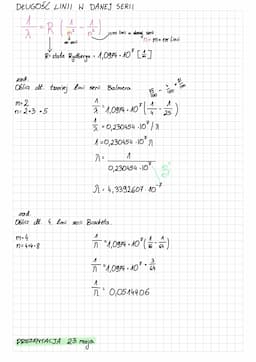 DŁUGOŚĆ LINII W DANEJ SERII
1/λ = R (1/m² - 1/n²)
nr serii
n = m + nr linii
R = stała Rydberga = 1,0974 · 10⁷ [1/m]
zad.
Oblicz dł. trzeciej linii serii Balmera
m=2
n=2+3=5
1/λ = 1,0974 · 10⁷ (1/4 - 1/25)
1/λ = 0,230454 · 10⁷ / λ
1 = 0,230454 · 10⁷ λ
λ = 1 / 0,230454 · 10⁷
λ = 4,3392607 · 10⁻⁷
zad.
Oblicz dł. 4 linii serii Bracketa.
m=4
n=4+4=8
1/λ = 1,0974 · 10⁷ (1/16 - 1/64)
1/λ = 1,0974 · 10⁷ · 3/64
1/λ = 0,0514406
PREZENTACJA 23 maja